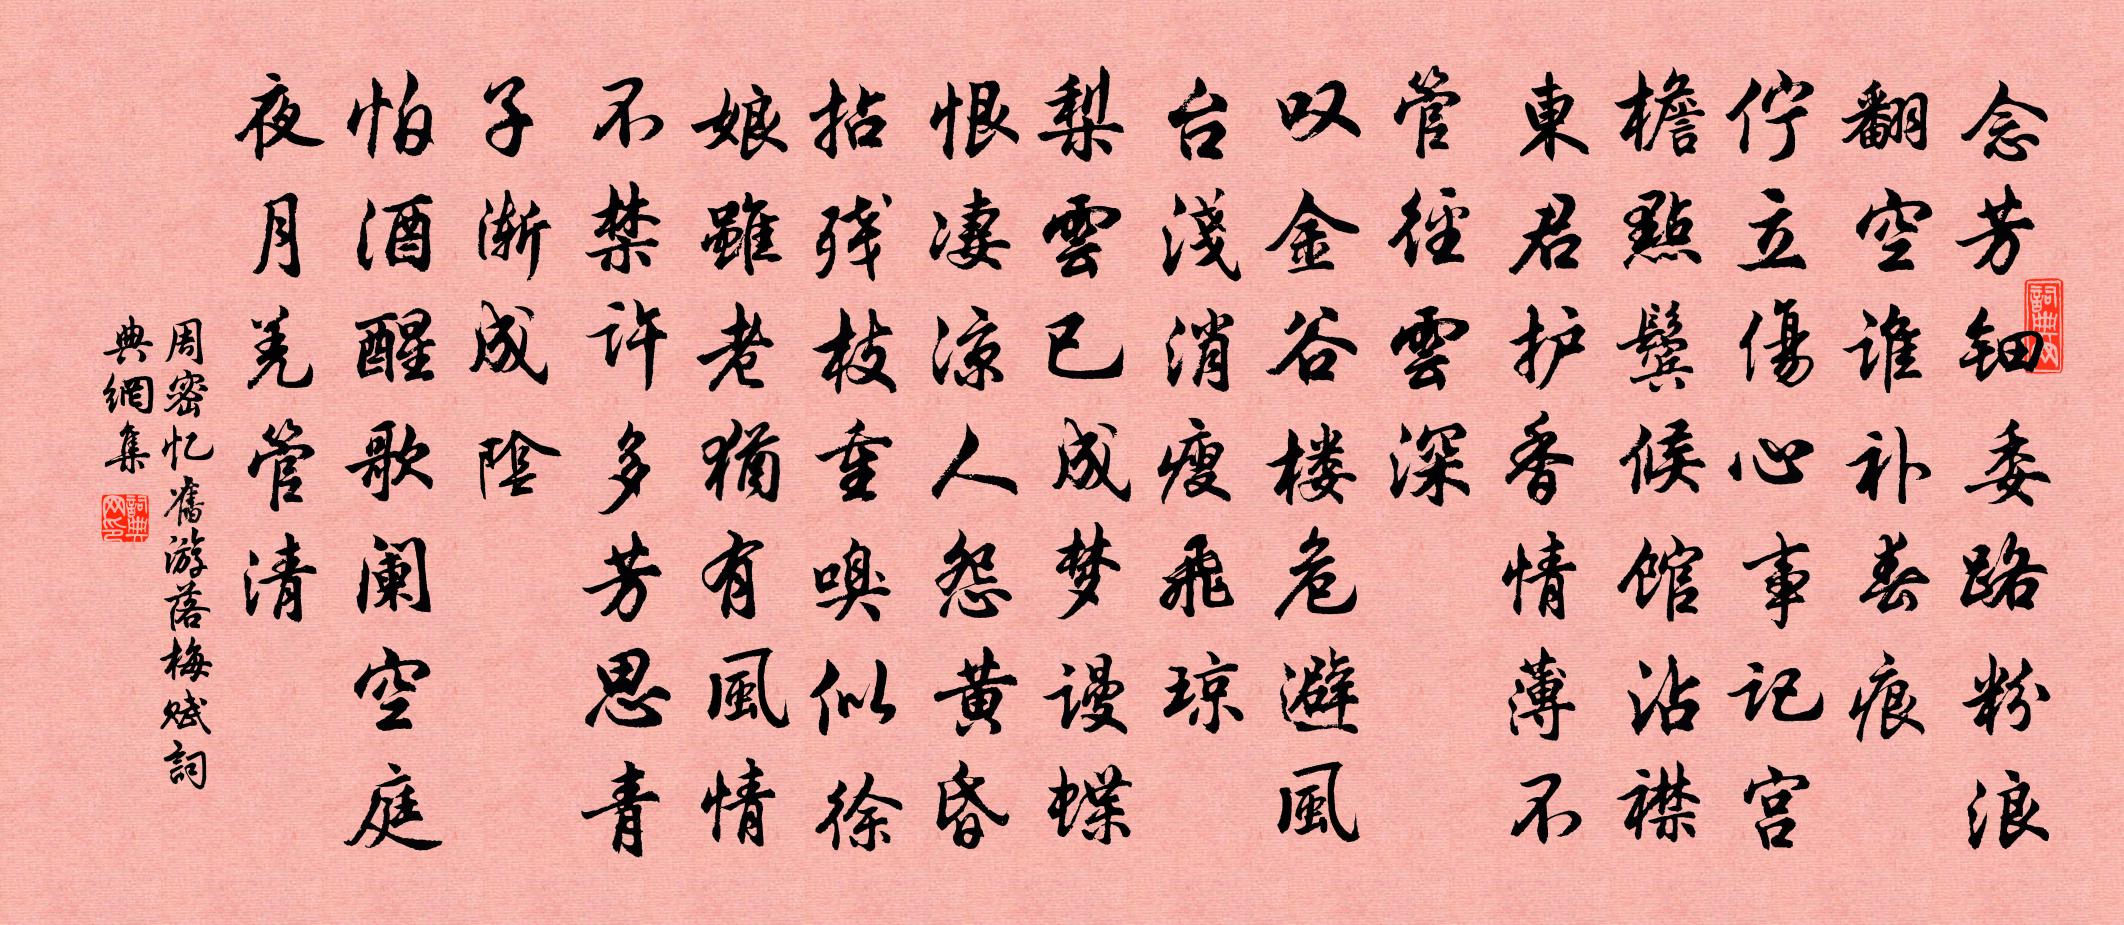 念芳钿委路粉浪
翻空谁补春痕
佇立傷心事记宫
檐點鬓候馆沾襟
東君护香情薄不
管径雲深
叹金谷楼危避風
台淺消瘦飛琼
梨雲已成梦谩蝶
恨凄凉人怨黄昏
拈残枝重嗅似徐
娘雖老猶有風情
不禁许多芳思青
子渐成陰
怕酒醒歌阑空庭
夜月羌管清
周密忆舊游落梅赋詞
典網集